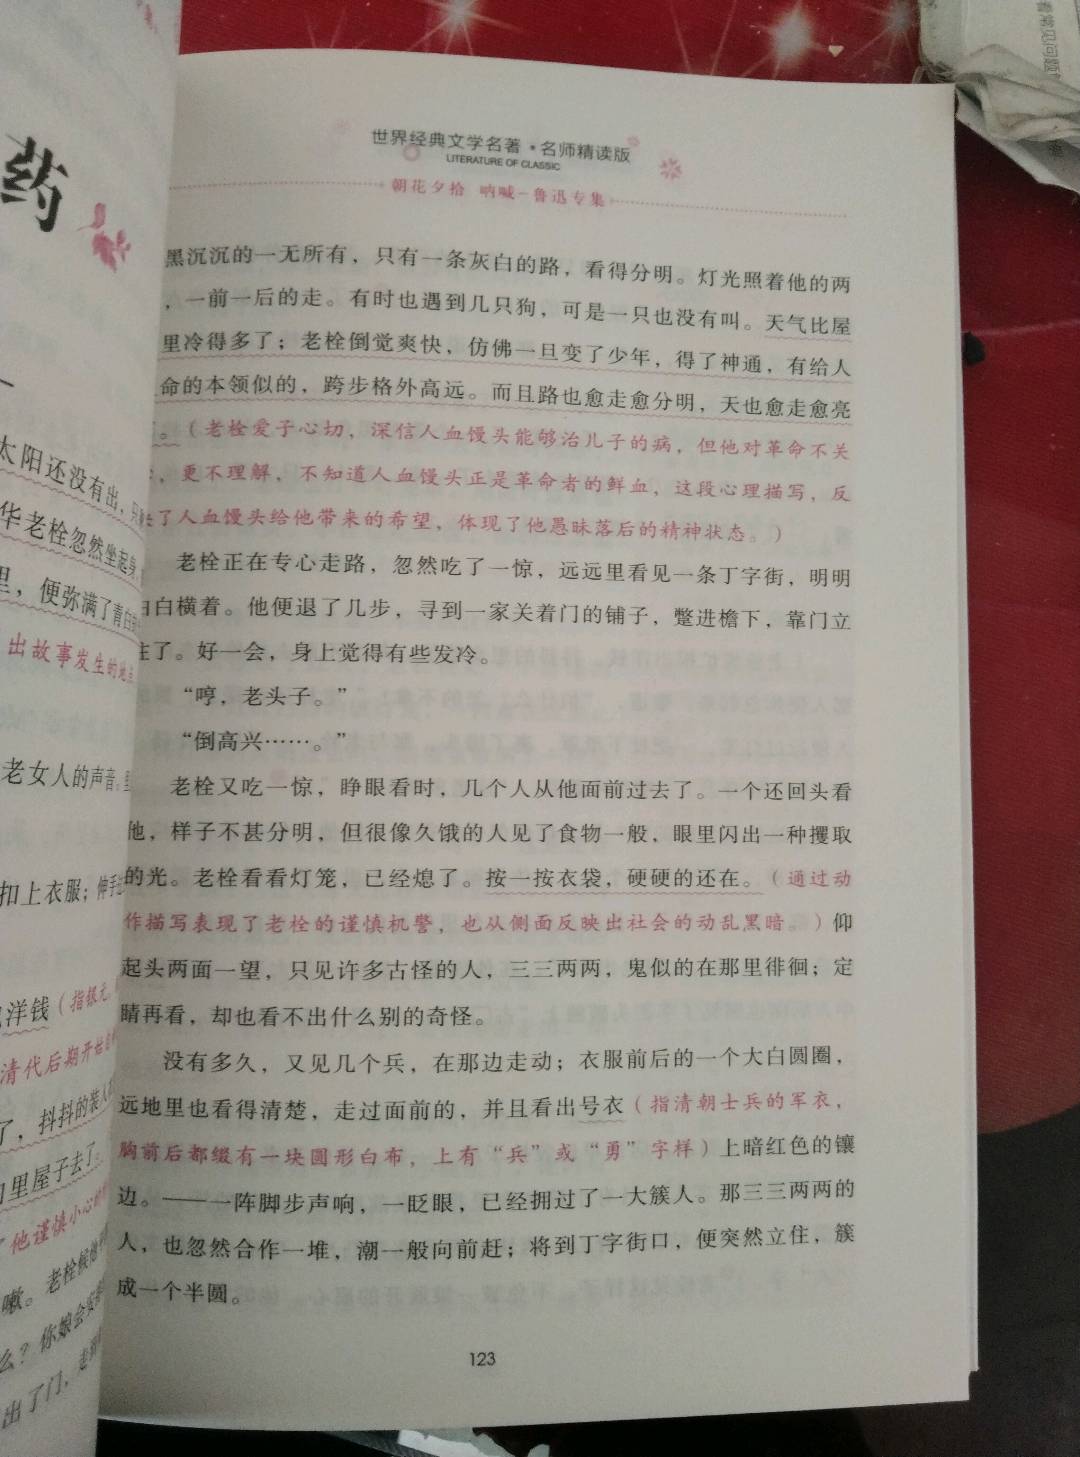 药
一
太阳还没有出，只
华老栓忽然坐起身，
里，便弥满了青白
出故事发生的地点
老女人的声音。里
扣上衣服；伸手
洋钱（指银元，
清代后期开始
了，抖抖的装入
里屋子去了。
他谨慎小心
嗽。老栓候他
么？你娘会安
出了门，走到
世界经典文学名著·名师精读版
LITERATURE OF CLASSIC
朝花夕拾 呐喊-鲁迅专集
黑沉沉的一无所有，只有一条灰白的路，看得分明。灯光照着他的两
，一前一后的走。有时也遇到几只狗，可是一只也没有叫。天气比屋
里冷得多了；老栓倒觉爽快，仿佛一旦变了少年，得了神通，有给人
命的本领似的，跨步格外高远。而且路也愈走愈分明，天也愈走愈亮
。（老栓爱子心切，深信人血馒头能够治儿子的病，但他对革命不关
，更不理解，不知道人血馒头正是革命者的鲜血，这段心理描写，反
了人血馒头给他带来的希望，体现了他愚昧落后的精神状态。）
老栓正在专心走路，忽然吃了一惊，远远里看见一条丁字街，明明
白白横着。他便退了几步，寻到一家关着门的铺子，蹩进檐下，靠门立
住了。好一会，身上觉得有些发冷。
“哼，老头子。”
“倒高兴……。”
老栓又吃一惊，睁眼看时，几个人从他面前过去了。一个还回头看
他，样子不甚分明，但很像久饿的人见了食物一般，眼里闪出一种攫取
的光。老栓看看灯笼，已经熄了。按一按衣袋，硬硬的还在。（通过动
作描写表现了老栓的谨慎机警，也从侧面反映出社会的动乱黑暗。）仰
起头两面一望，只见许多古怪的人，三三两两，鬼似的在那里徘徊；定
睛再看，却也看不出什么别的奇怪。
没有多久，又见几个兵，在那边走动；衣服前后的一个大白圆圈，
远地里也看得清楚，走过面前的，并且看出号衣（指清朝士兵的军衣，
胸前后都缀有一块圆形白布，上有“兵”或“勇”字样）上暗红色的镶
边。——一阵脚步声响，一眨眼，已经拥过了一大簇人。那三三两两的
人，也忽然合作一堆，潮一般向前赶；将到丁字街口，便突然立住，簇
成一个半圆。
123